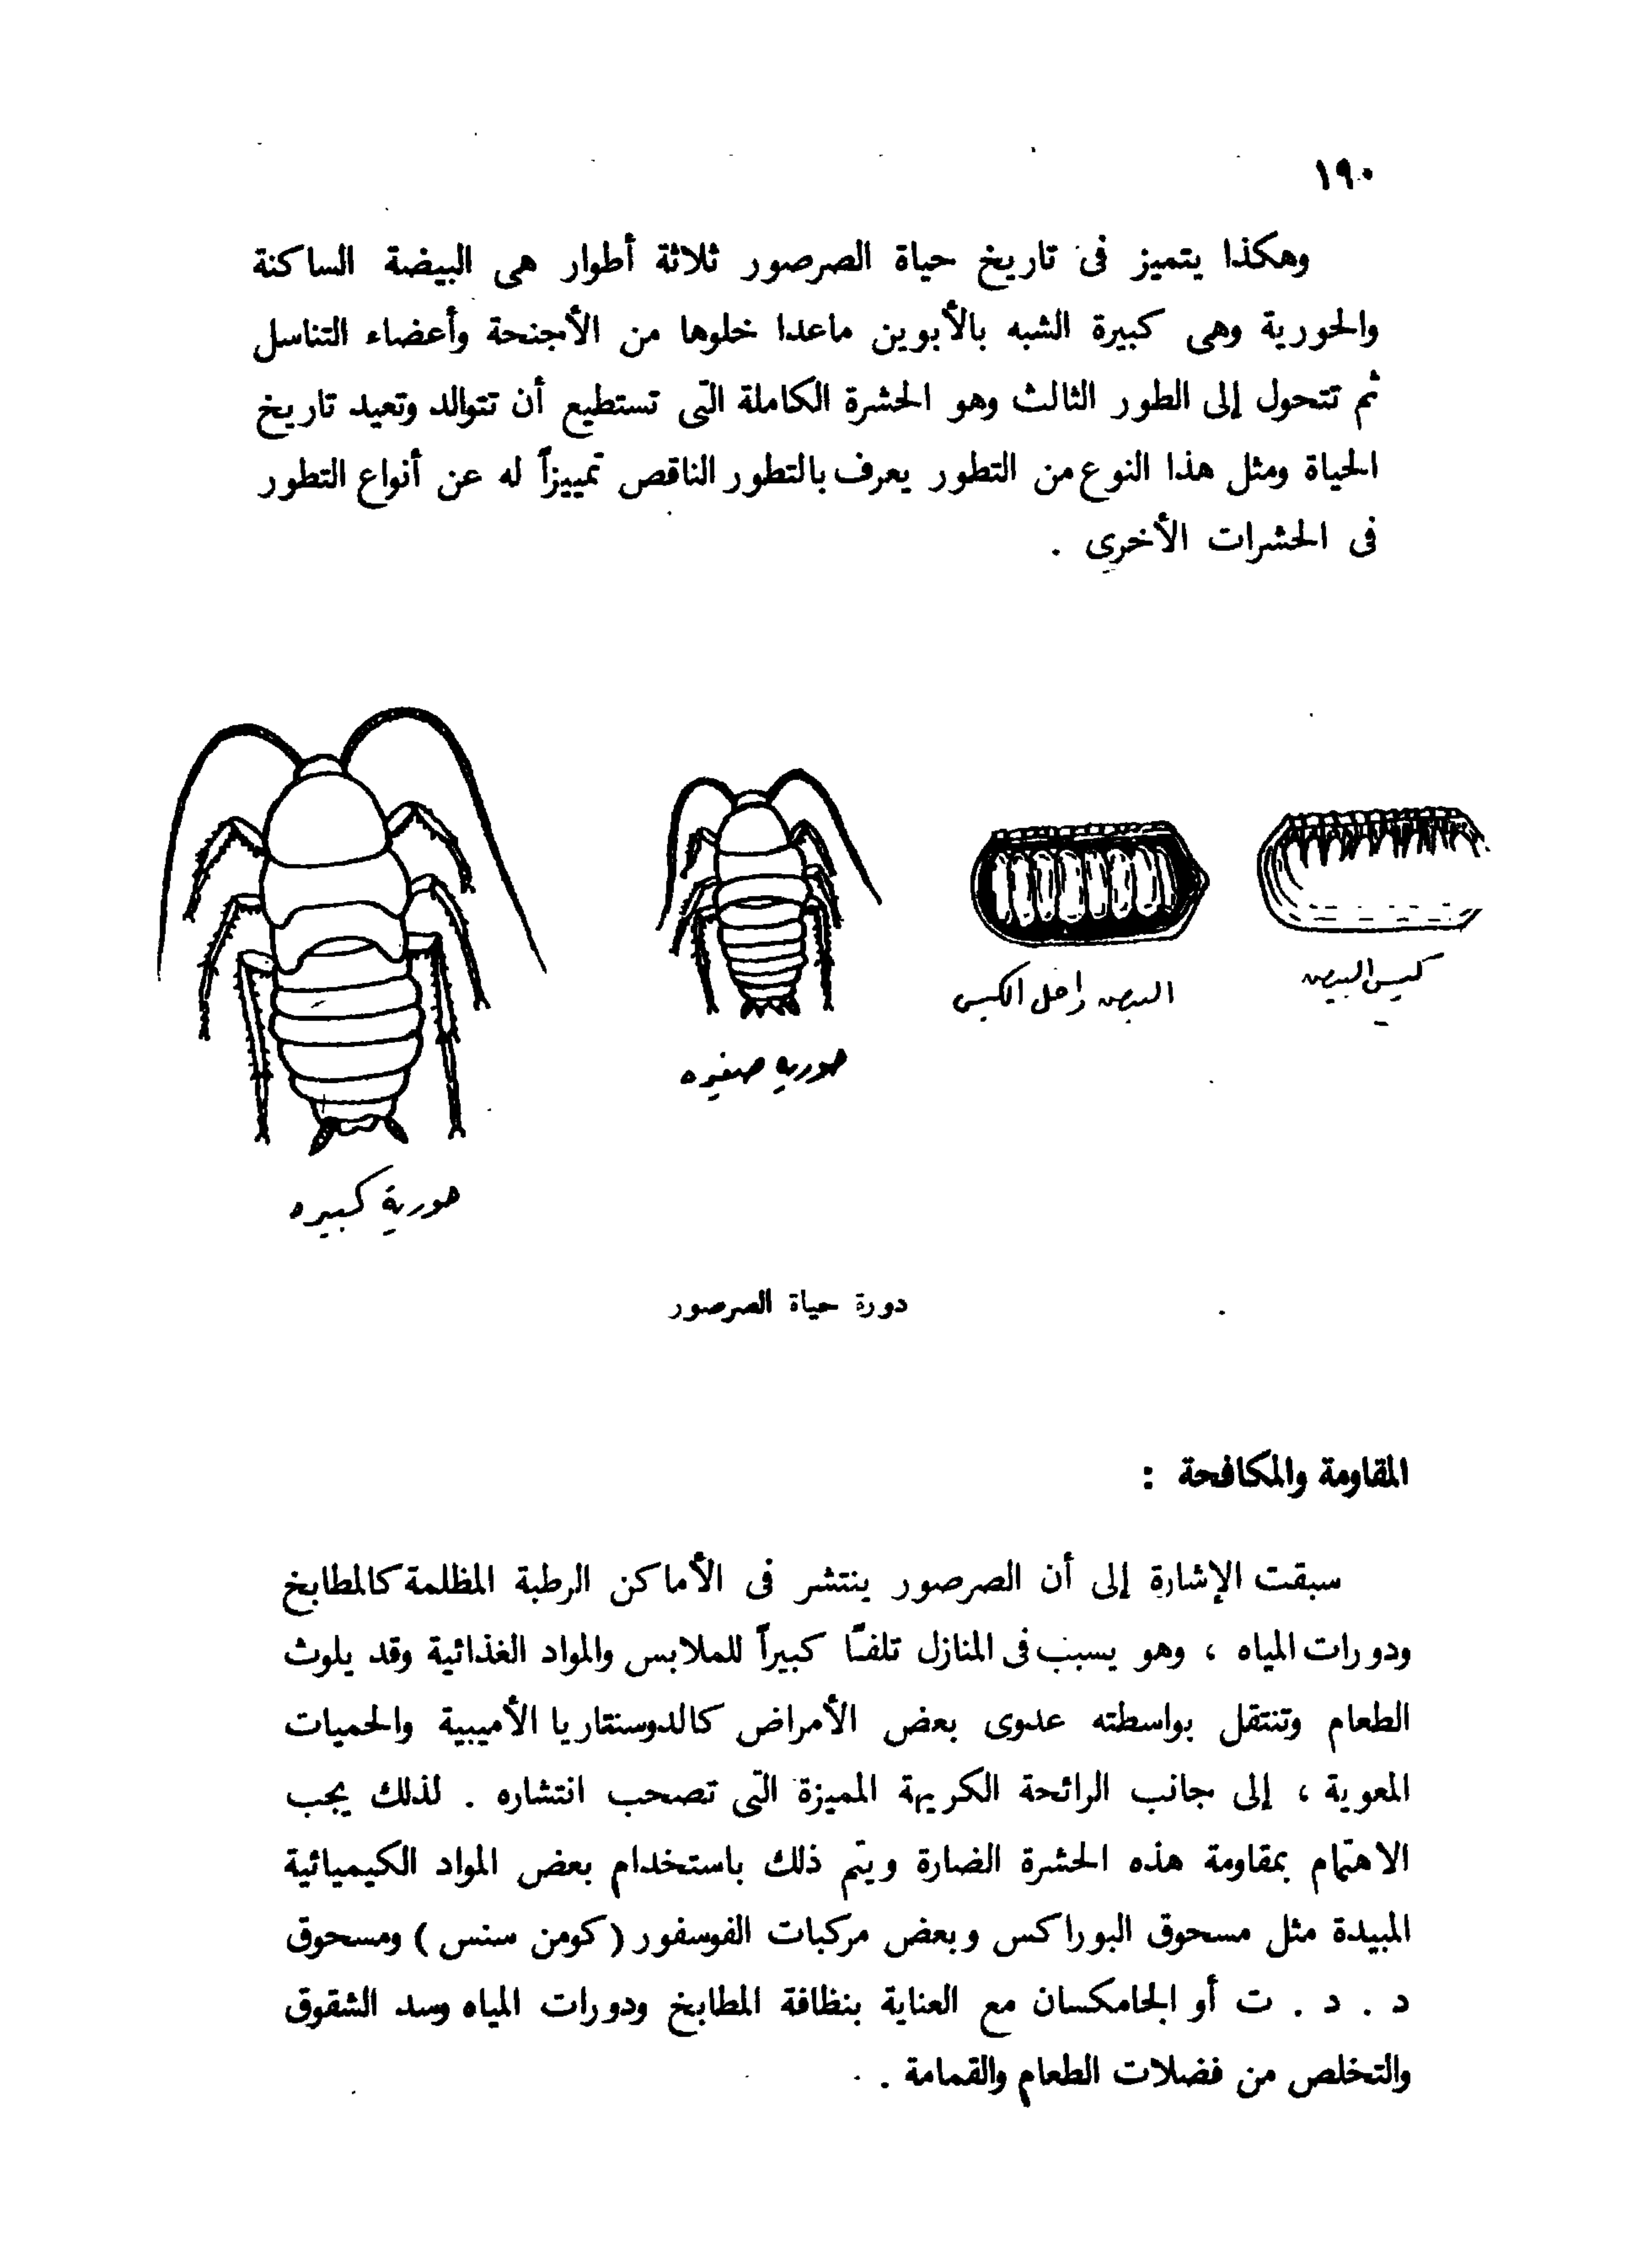 ١٩٠
وهكذا يتميز فى تاريخ حياة الصرصور ثلاثة أطوار هى البيضة الساكنة
والحورية وهى كبيرة الشبه بالأبوين ماعدا خلوها من الأجنحة وأعضاء التناسل
ثم تتحول إلى الطور الثالث وهو الحشرة الكاملة التى تستطيع أن تتوالد وتعيد تاريخ
الحياة ومثل هذا النوع من التطور يعرف بالتطور الناقص تمييزاً له عن أنواع التطور
فى الحشرات الأخرى .
كيس البيض
البيض داخل الكيس
حورية صغيره
حورية كبيره
دورة حياة الصرصور
المقاومة والمكافحة :
سبقت الإشارة إلى أن الصرصور ينتشر فى الأماكن الرطبة المظلمة كالمطابخ
ودورات المياه ، وهو يسبب فى المنازل تلفاً كبيراً للملابس والمواد الغذائية وقد يلوث
الطعام وتنتقل بواسطته عدوى بعض الأمراض كالدوسنتاريا الأميبية والحميات
المعوية ، إلى جانب الرائحة الكريهة المميزة التى تصحب انتشاره . لذلك يجب
الاهتمام بمقاومة هذه الحشرة الضارة ويتم ذلك باستخدام بعض المواد الكيميائية
المبيدة مثل مسحوق البوراكس وبعض مركبات الفوسفور ( كومن سنس ) ومسحوق
د . د . ت أو الجامكسان مع العناية بنظافة المطابخ ودورات المياه وسد الشقوق
والتخلص من فضلات الطعام والقمامة .